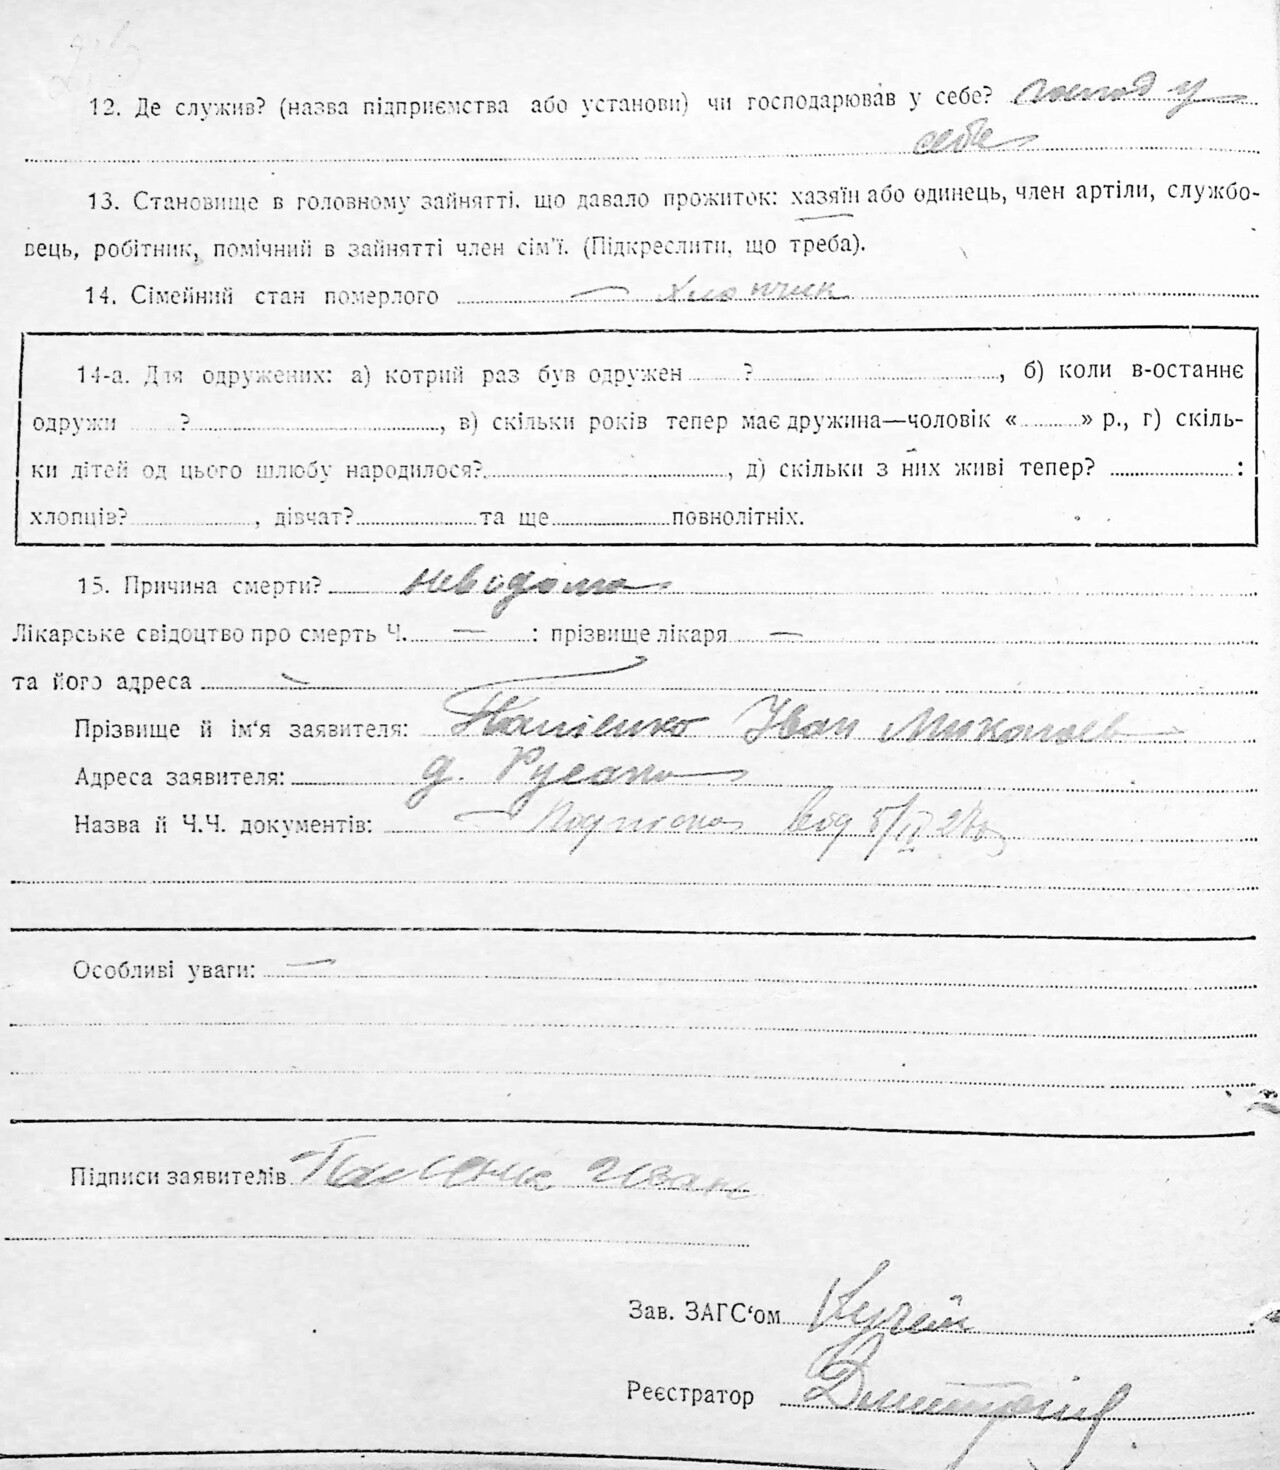 12. Де служив? (назва підприємства або установи) чи господарював у себе? господ у
себе
13. Становище в головному зайнятті, що давало прожиток: хазяїн або одинець, член артіли, службо-
вець, робітник, помічний в зайнятті член сім'ї. (Підкреслити, що треба).
14. Сімейний стан померлого — хлопчик
14-а. Для одружених: а) котрий раз був одружен ? , б) коли в-останнє
одружи ? , в) скільки років тепер має дружина—чоловік « » р., г) скіль-
ки дітей од цього шлюбу народилося? , д) скільки з них живі тепер? :
хлопців? , дівчат? та ще повнолітніх.
15. Причина смерти? невідома
Лікарське свідоцтво про смерть Ч. — : прізвище лікаря —
та його адреса —
Прізвище й ім'я заявителя: Іван Миколаєв
Адреса заявителя: д. Русанів
Назва й Ч.Ч. документів: — Подписка від 5/IV
Особливі уваги: —
Підписи заявителів Иван
Зав. ЗАГС'ом
Реєстратор